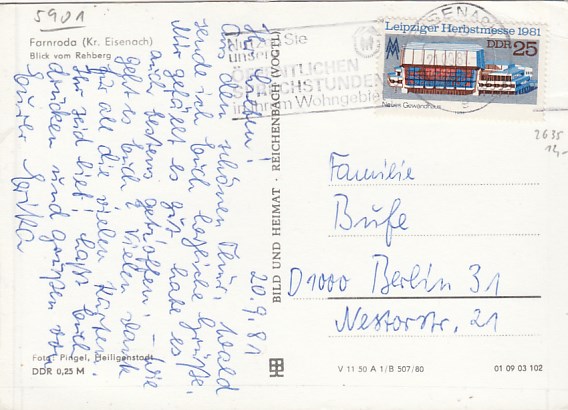 5901
Farnroda (Kr. Eisenach)
Blick vom Rehberg
20.9.81
Ihr Lieben!
Aus dem schönen Thür. Wald
sende ich Euch herzliche Grüße.
Mir gefällt es gut, habe es
auch bestens getroffen. – Wie
geht es Euch? Vielen Dank
für all die vielen Karten.
Ihr seid lieb, laßt Euch
drücken und grüßen von
Eurer Erika
Foto: Pingel, Heiligenstadt
DDR 0,25 M
BILD UND HEIMAT · REICHENBACH (VOGTL)
Nutzen Sie
unsere
ÖFFENTLICHEN
SPRECHSTUNDEN
in Ihrem Wohngebiet
EISENACH
Leipziger Herbstmesse 1981
DDR 25
Neues Gewandhaus
2635
12,-
Familie
Bufe
D1000 Berlin 31
Nestorstr. 21
V 11 50 A 1/B 507/80
01 09 03 102